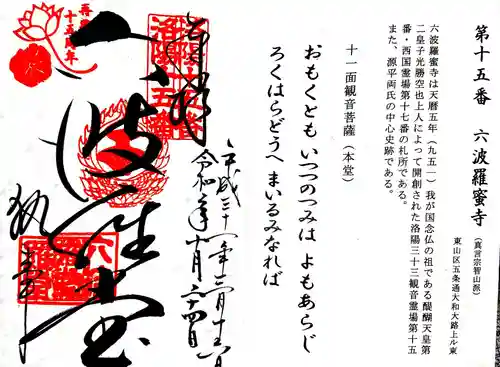 第十五番　六波羅蜜寺
（真言宗智山派）
東山区五条通大和大路上ル東
六波羅蜜寺は天暦五年（九五一）我が国念仏の祖である醍醐天皇第
二皇子光勝空也上人によって開創された洛陽三十三観音霊場第十五
番・西国霊場第十七番の札所である。
また、源平両氏の中心史跡である。
十一面観音菩薩（本堂）
おもくとも　いつつのつみは　よもあらじ
ろくはらどうへ　まいるみなれば
奉拝
洛陽十五番
平成三十一年二月十六日
令和元年十月二十四日
六波羅堂
再興
十五周年